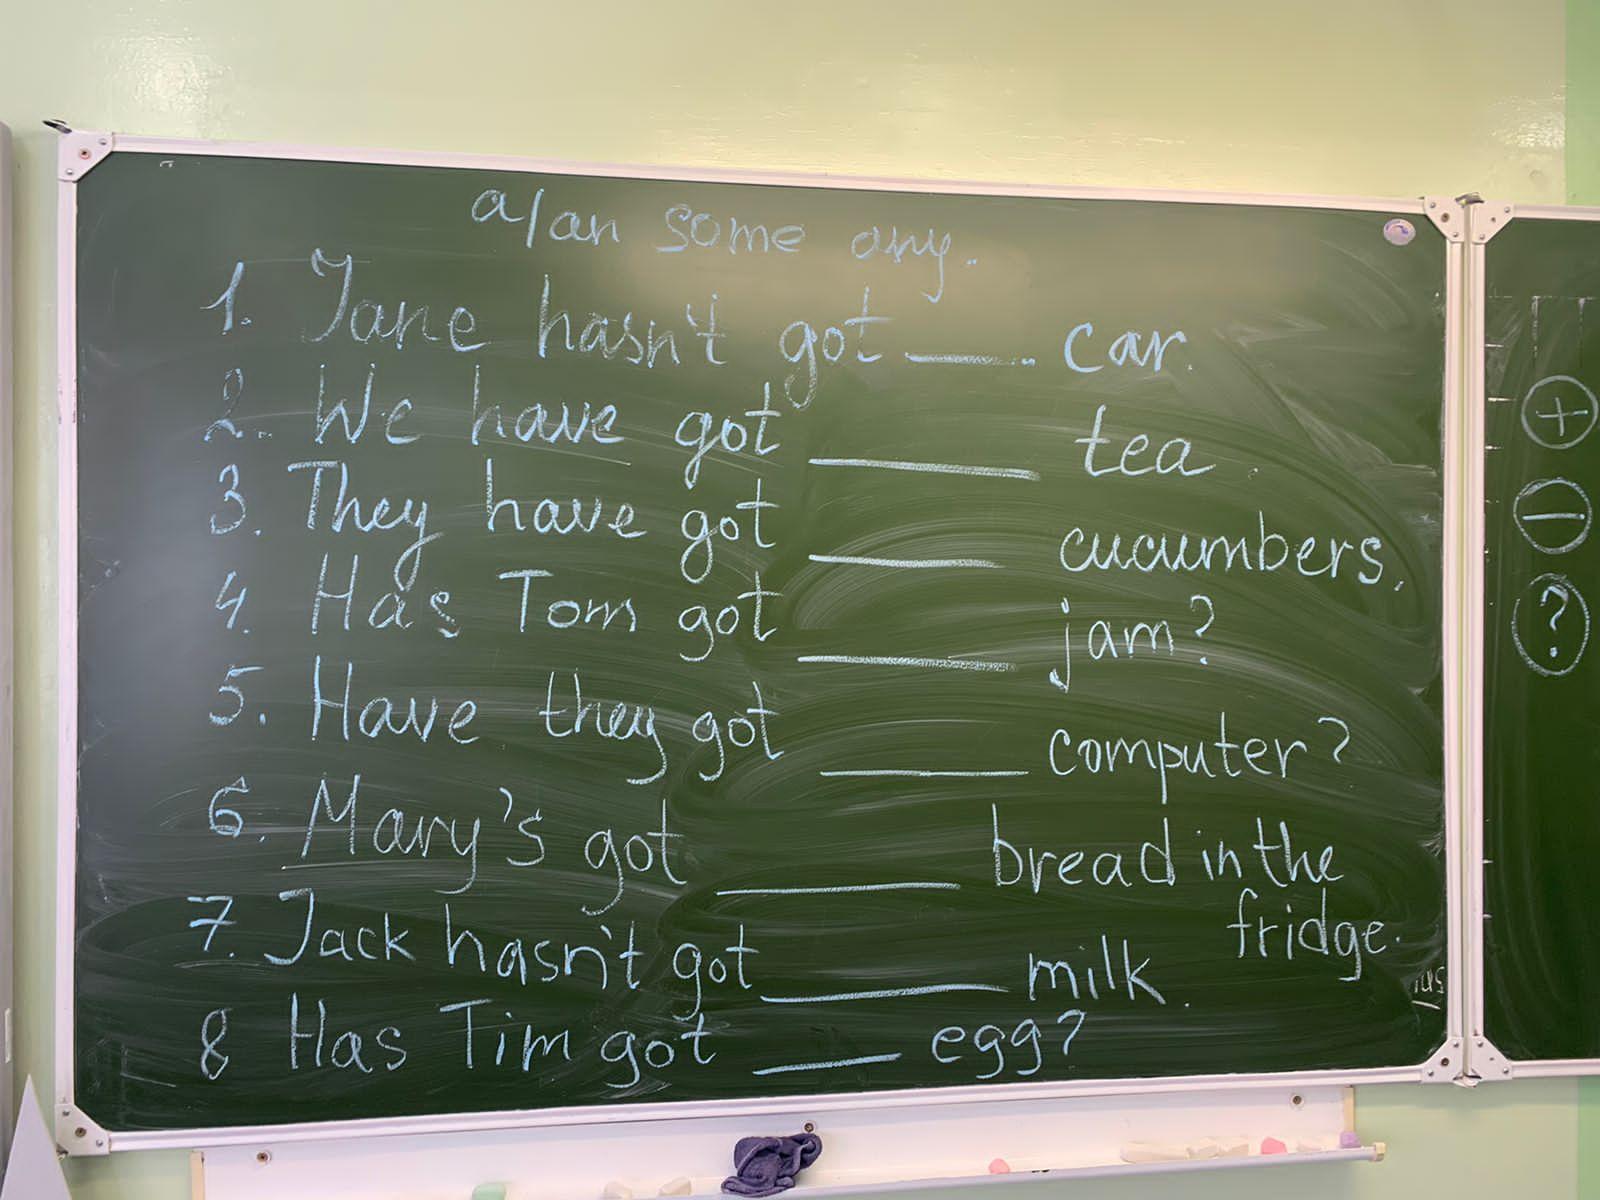 a/an some any.
1. Jane hasn't got ____ car.
2. We have got ____ tea.
3. They have got ____ cucumbers.
4. Has Tom got ____ jam?
5. Have they got ____ computer?
6. Mary's got ____ bread in the
fridge.
7. Jack hasn't got ____ milk.
8 Has Tim got ____ egg?
+
-
?